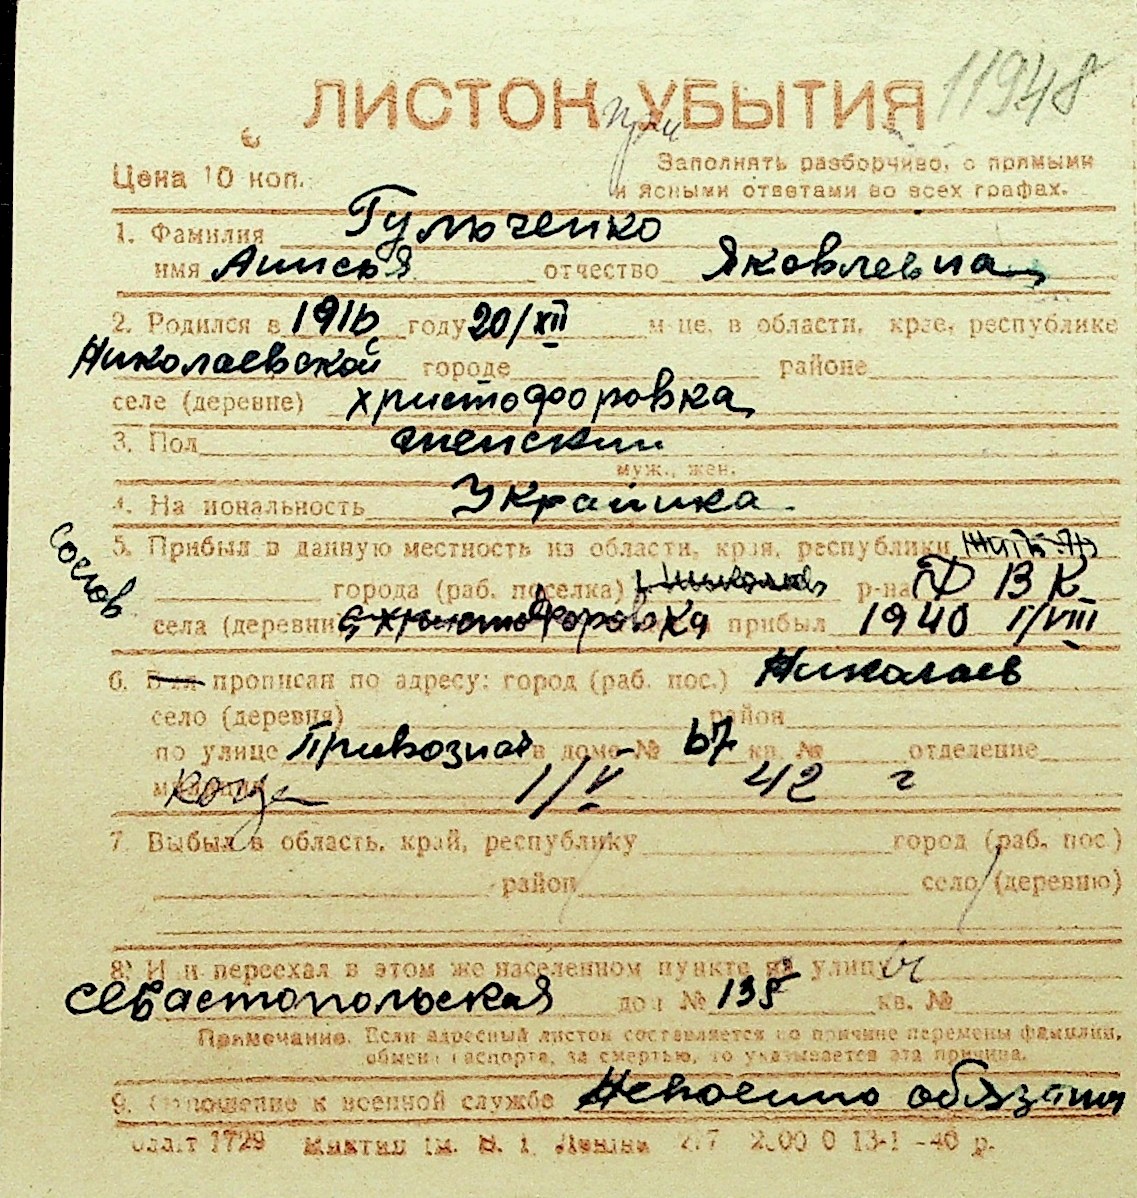 11948
ЛИСТОК при УБЫТИЯ
Цена 10 коп.
Заполнять разборчиво, с прямыми
и ясными ответами во всех графах.
1. Фамилия Гульченко
имя Анисья отчество Яковлевна
2. Родился в 1916 году 20/XII м-це, в области, крае, республике
Николаевской городе районе
селе (деревне) Христофоровка
3. Пол женский
муж., жен.
4. Национальность Украинка
5. Прибыл в данную местность из области, края, республики
города (раб. поселка) г. Николаев р-на
села (деревни) с. Христофоровка прибыл 1940 1/VIII
6. Был прописан по адресу: город (раб. пос.) Николаев
село (деревня) район
по улице Привозная в доме № 67 кв. № отделение
милиции когда 1/V 42 г
7. Выбыл в область, край, республику город (раб. пос.)
район село (деревню)
8) Или переехал в этом же населенном пункте на улицу
Севастопольская дом № 135 кв. №
Примечание. Если адресный листок составляется по причине перемены фамилии,
обмена паспорта, за смертью, то указывается эта причина.
9. Отношение к военной службе Невоенно обязанная
1729 им. В. И. Ленина